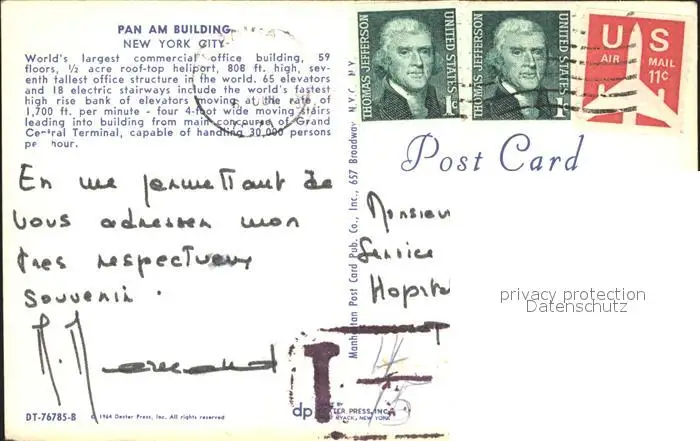 PAN AM BUILDING
NEW YORK CITY
World's largest commercial office building, 59
floors, ½ acre roof-top heliport, 808 ft. high, sev-
enth tallest office structure in the world. 65 elevators
and 18 electric stairways include the world's fastest
high rise bank of elevators moving at the rate of
1,700 ft. per minute - four 4-foot wide moving stairs
leading into building from main concourse of Grand
Central Terminal, capable of handling 30,000 persons
per hour.
THOMAS JEFFERSON
1c
UNITED STATES
THOMAS JEFFERSON
1c
UNITED STATES
US
AIR MAIL
11c
Post Card
En me permettant de
vous adresser mon
très respectueux
souvenir.
Monsieur
Service
Hopital
privacy protection
Datenschutz
Manhattan Post Card Pub. Co., Inc., 657 Broadway, N.Y.C. NY
T.
4
15
DT-76785-B
© 1964 Dexter Press, Inc. All rights reserved
dp
DEXTER PRESS, INC.
WEST NYACK, NEW YORK